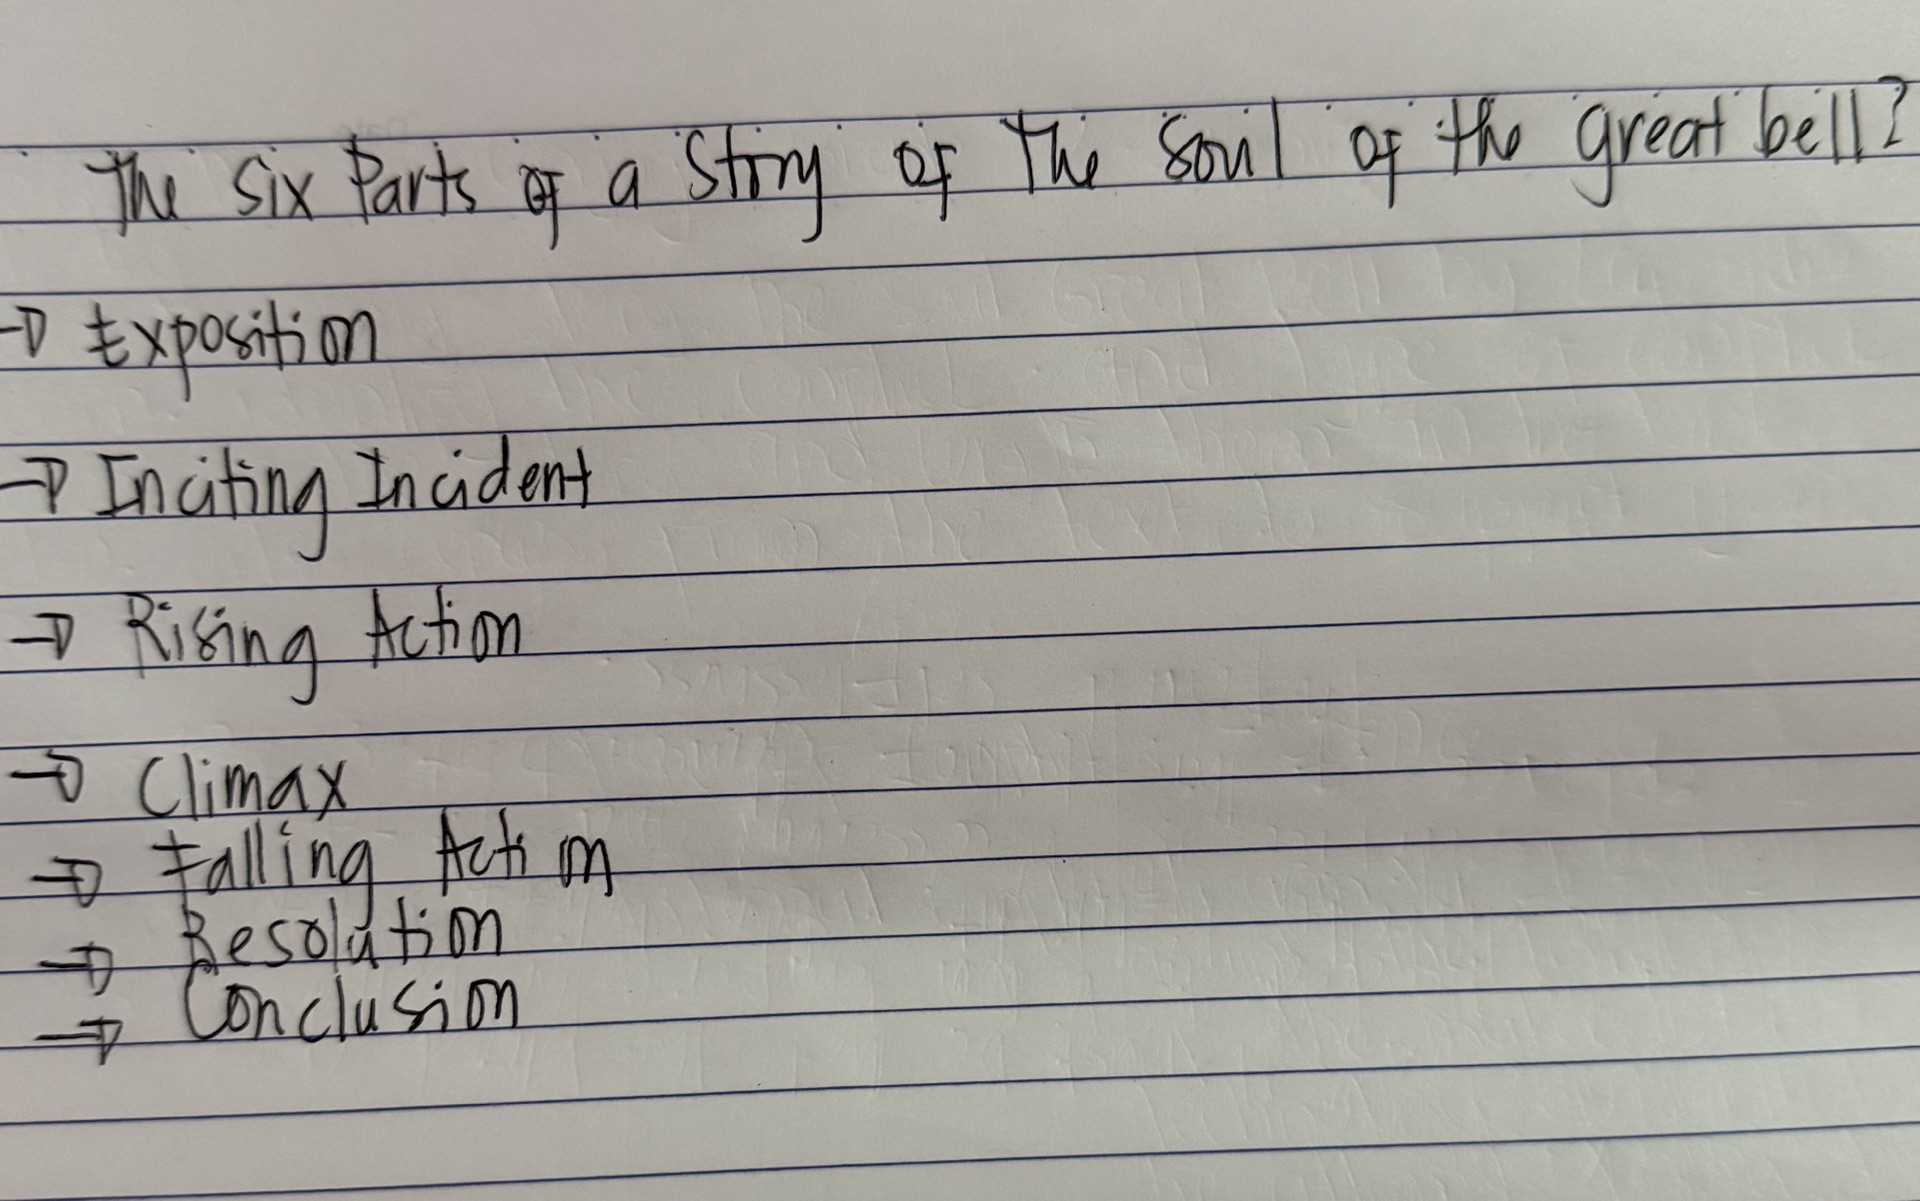 The six Parts of a Story of The Soul of the great bell?
→ Exposition
→ Inciting Incident
→ Rising Action
→ Climax
→ Falling Action
→ Resolution
→ Conclusion